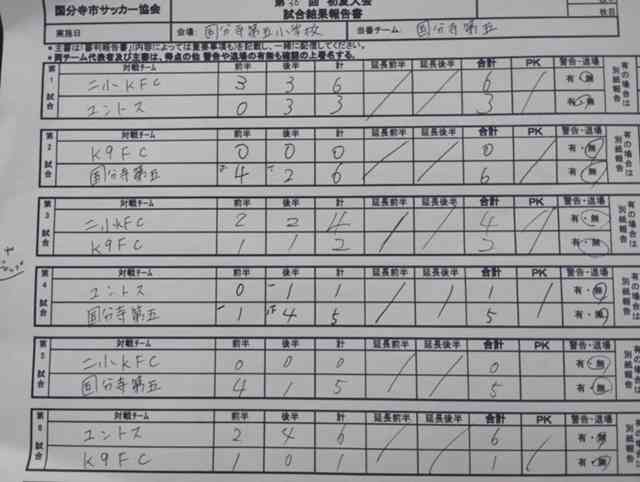 国分寺市サッカー協会 第30回 初夏大会
試合結果報告書 枚目
実施日 会場: 国分寺第五小学校 当番チーム: 国分寺第五
*主審は「審判報告書」(内容によっては重要事項も)を記載し、一緒に配信してください。
*両チーム代表者及び主審は、得点の他 警告や退場の有無も確認の上署名する。
第1試合 対戦チーム 前半 後半 計 延長前半 延長後半 合計 PK 警告・退場 有の場合は別紙報告
二小KFC 3 3 6 6 有・無
ユントス 0 3 3 3 有・無
第2試合 対戦チーム 前半 後半 計 延長前半 延長後半 合計 PK 警告・退場 有の場合は別紙報告
K9FC 0 0 0 0 有・無
国分寺第五 4 2 6 6 有・無
第3試合 対戦チーム 前半 後半 計 延長前半 延長後半 合計 PK 警告・退場 有の場合は別紙報告
二小KFC 2 2 4 4 有・無
K9FC 1 1 2 2 有・無
第4試合 対戦チーム 前半 後半 計 延長前半 延長後半 合計 PK 警告・退場 有の場合は別紙報告
ユントス 0 1 1 1 有・無
国分寺第五 1 4 5 5 有・無
第5試合 対戦チーム 前半 後半 計 延長前半 延長後半 合計 PK 警告・退場 有の場合は別紙報告
二小KFC 0 0 0 0 有・無
国分寺第五 4 1 5 5 有・無
第6試合 対戦チーム 前半 後半 計 延長前半 延長後半 合計 PK 警告・退場 有の場合は別紙報告
ユントス 2 4 6 6 有・無
K9FC 1 0 1 1 有・無